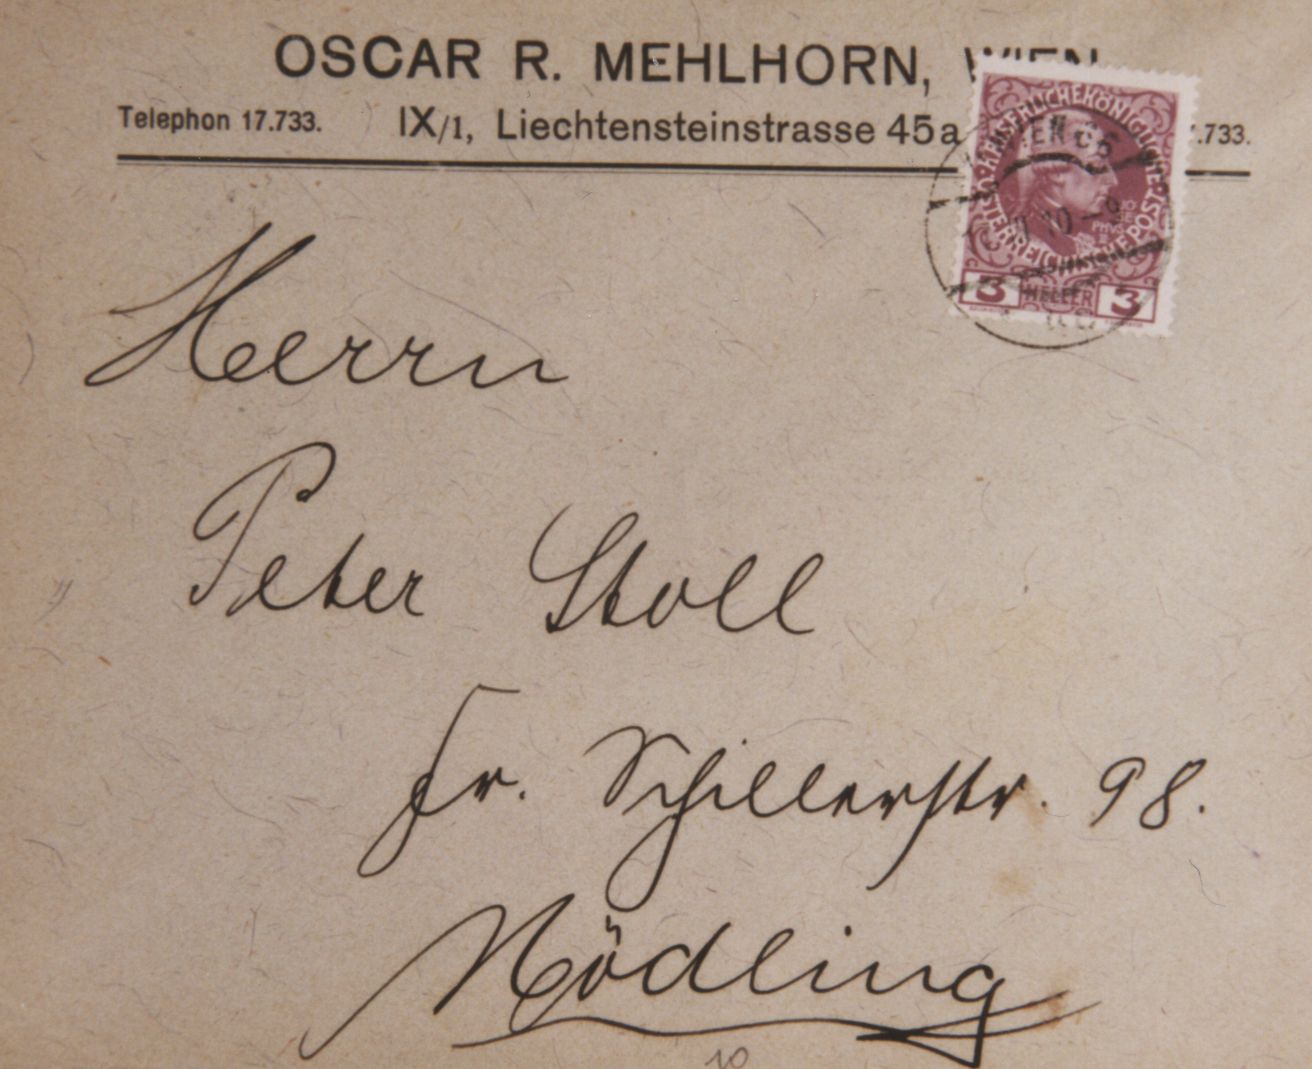 OSCAR R. MEHLHORN, WIEN
Telephon 17.733. IX/1, Liechtensteinstrasse 45a .733.
KAISERLICHEKÖNIGLICHE
ÖSTERREICHISCHE POST
WIEN 66
10-9
3 HELLER 3
Herrn
Peter Stoll
Fr. Schillerstr. 98.
Mödling
10